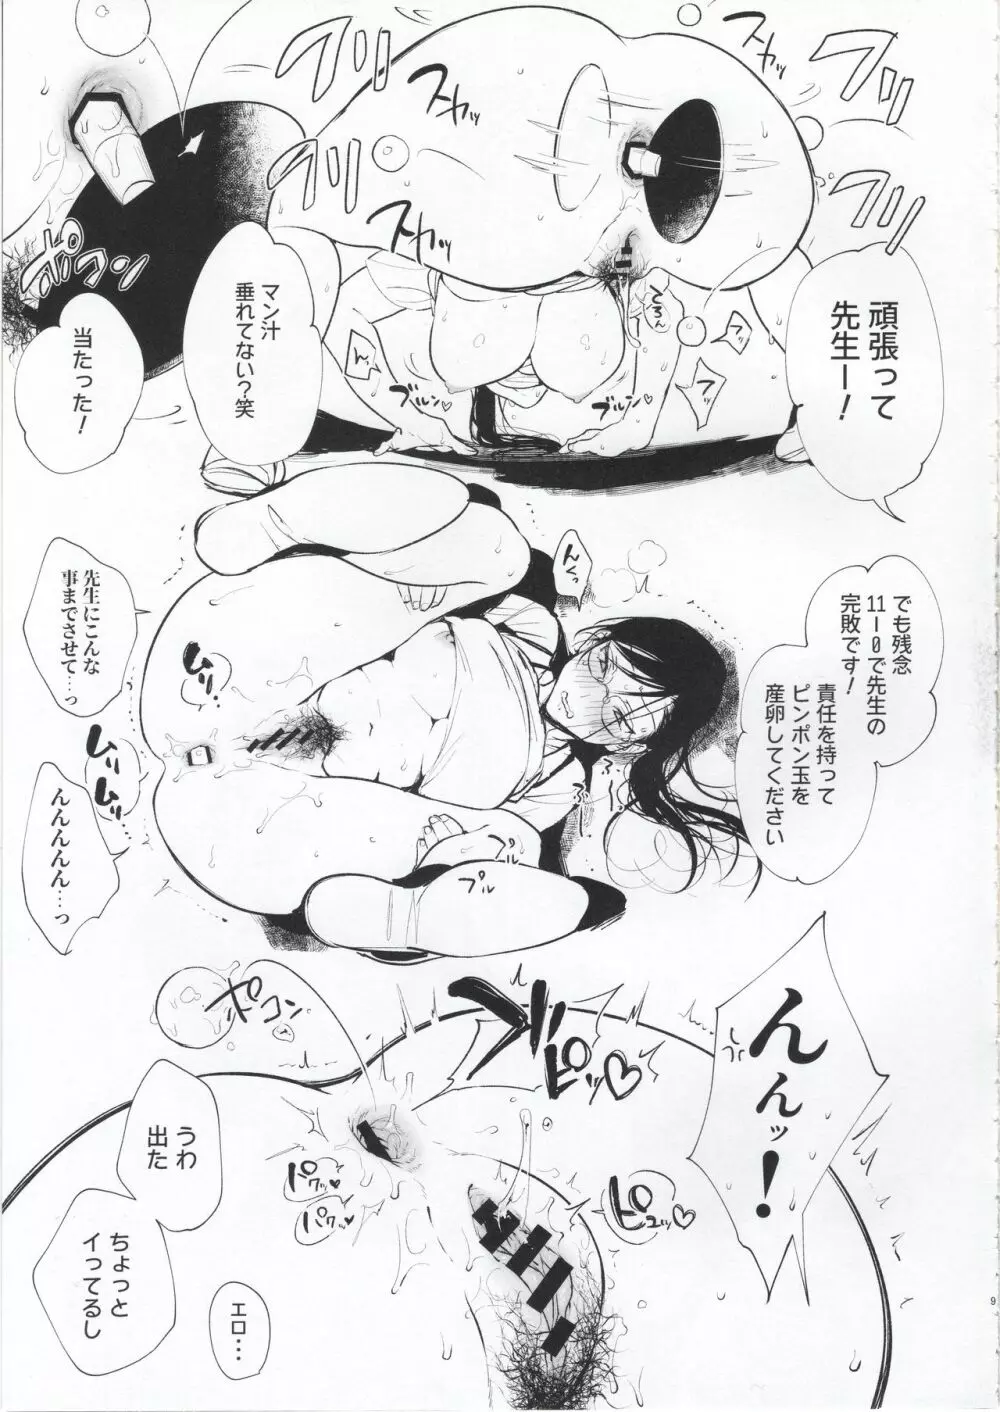 頑張って
先生ー！
マン汁
垂れてない？笑
当たった！
でも残念
11-0で先生の
完敗です！
責任を持って
ピンポン玉を
産卵してください
先生にこんな
事までさせて…っ
んんんんん…っ
んんッ！
うわ
出た
ちょっと
イってるし
エロ…
フリッ
フリッ
フリッ
フリッ
スカッ
スカッ
スカッ
ポコン
ブルン♡
ブルン♡
フーッ
フッ
んくっ
ムリッ
ムリッ
ムリッ
プルプル
ポコン
ブピッ♡
ピュッ♡
パクッ♡
パクッ♡
9